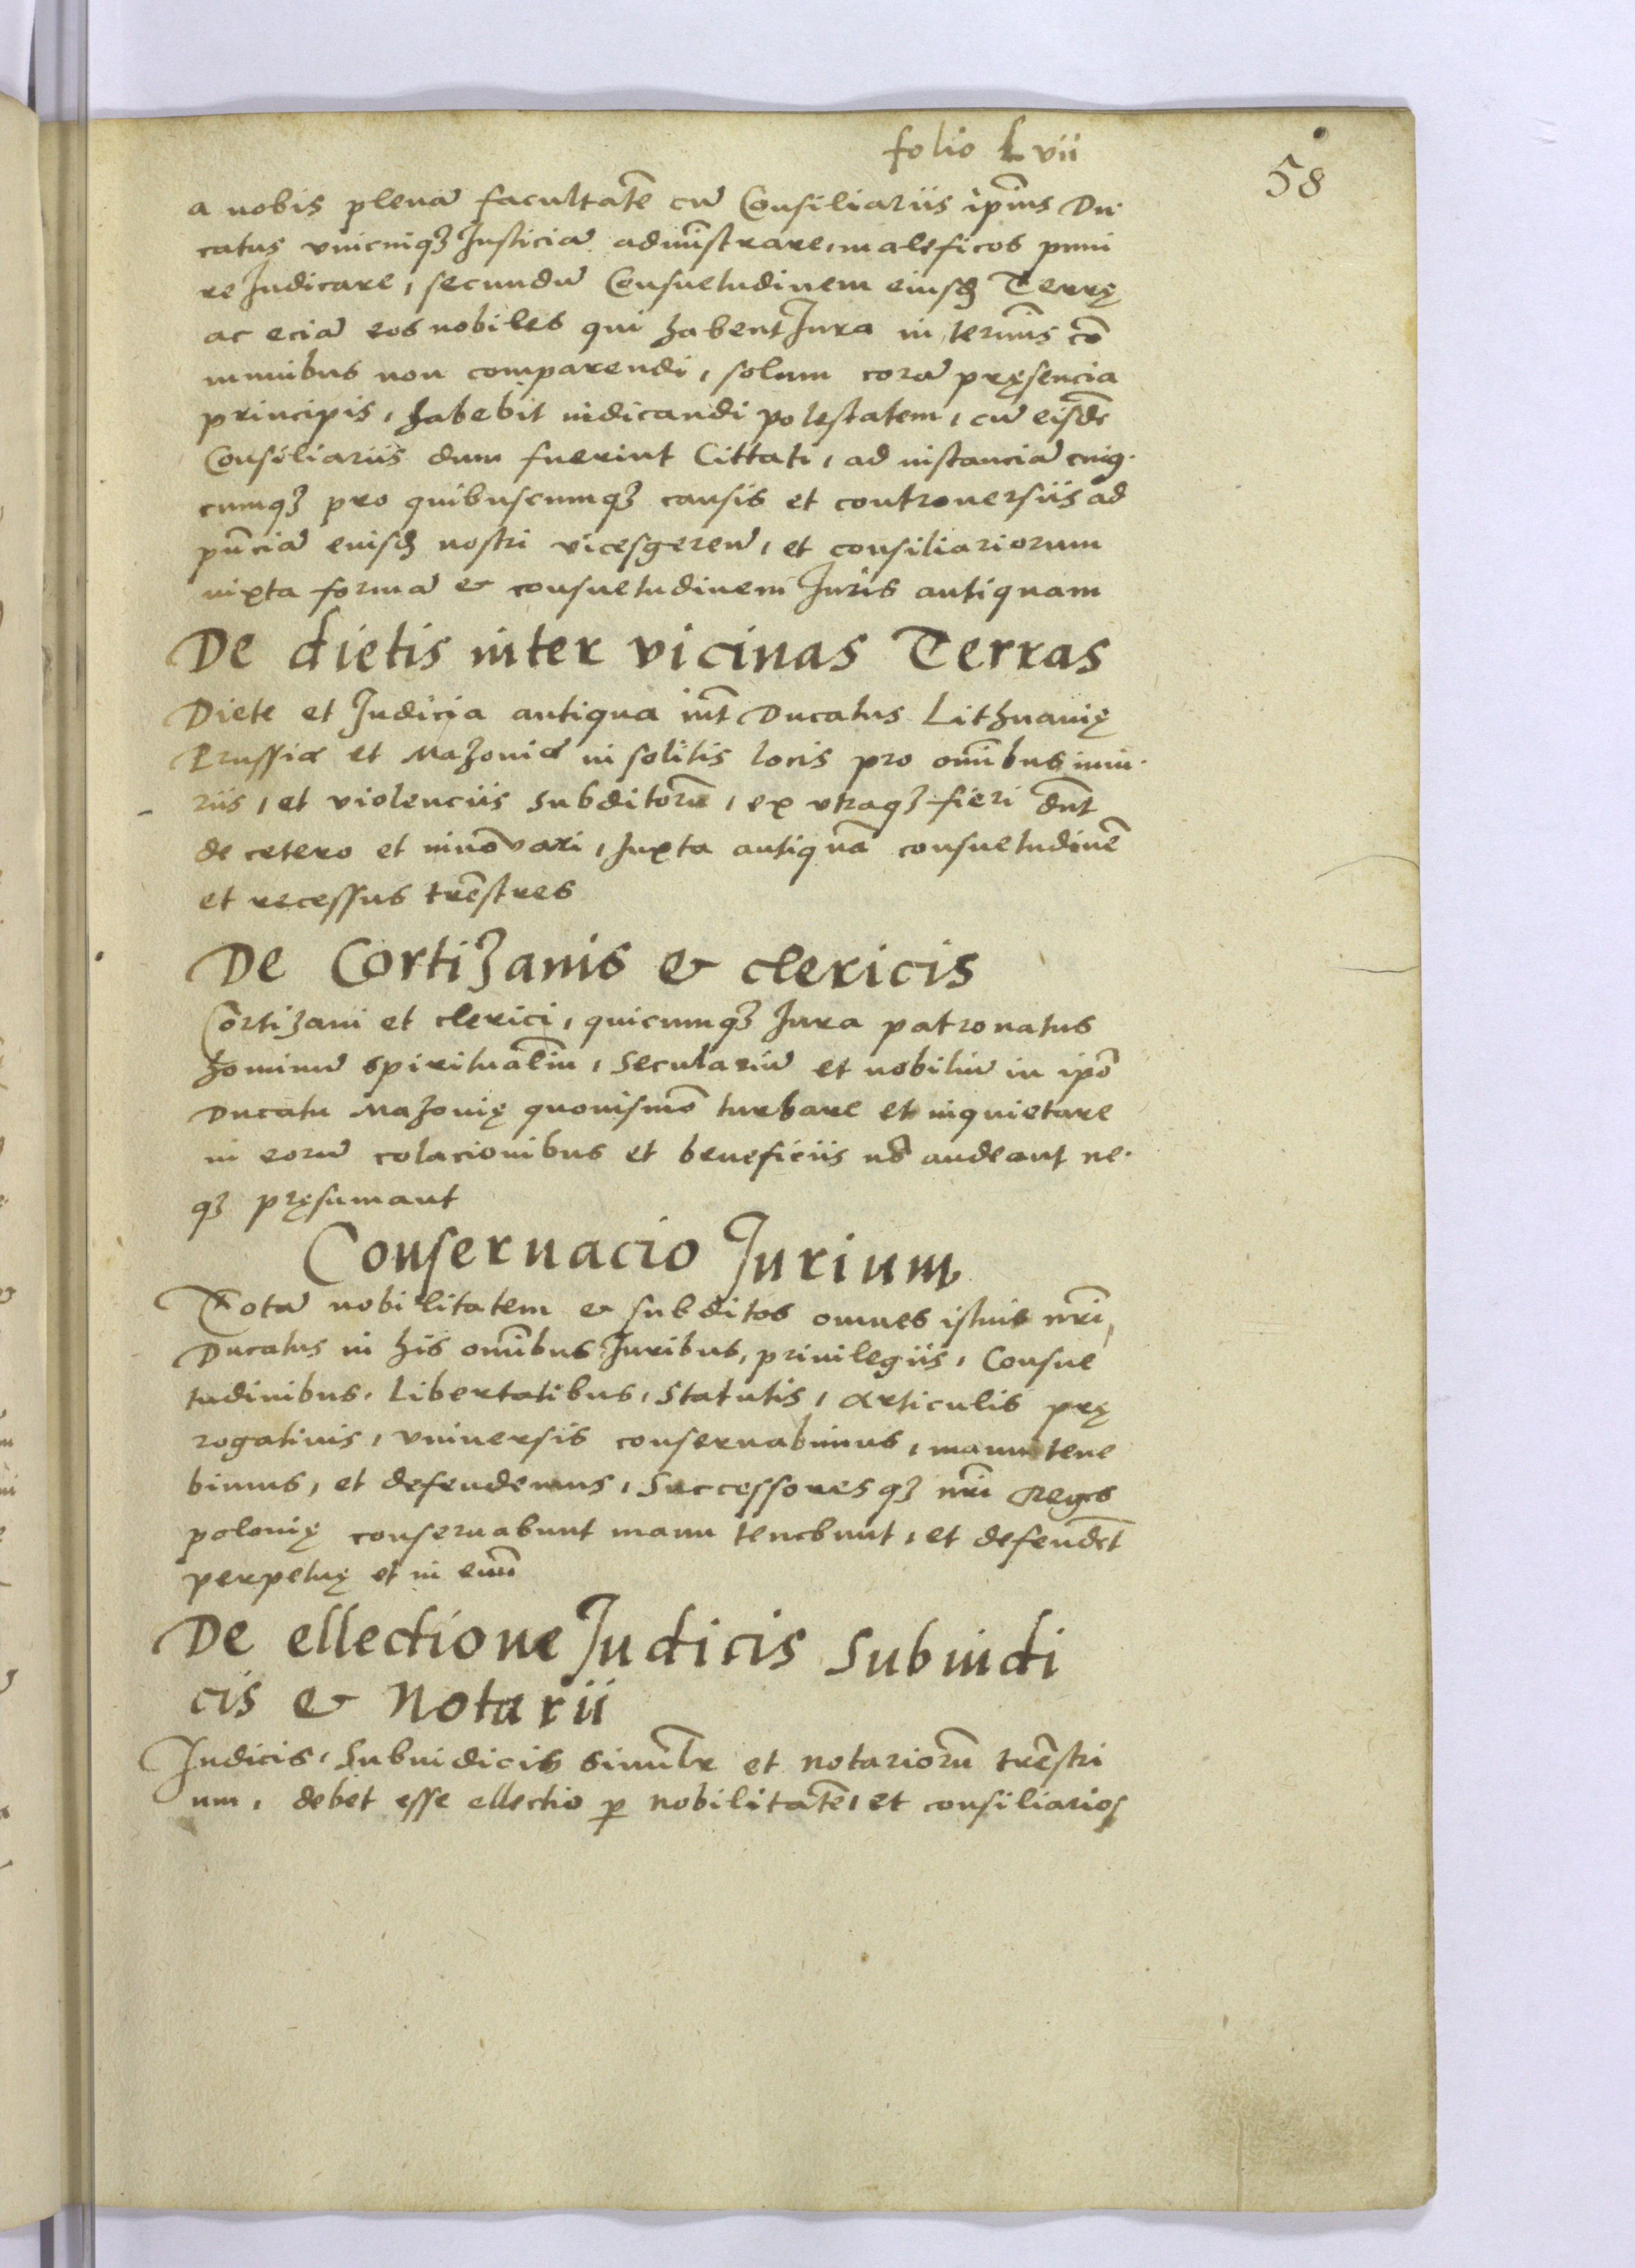 folio Lvii
58
a nobis plenā facultatē cū Consiliariis ipīus Du
catus vnicuiqꝫ Justiciā admīstrare, maleficos puni
re Judicare, secundū Consuetudinem eiusđ Terrę
ac eciā eos nobiles qui habent Jura in termīs cō
munibus non comparendi, solum corā pręsencia
principis, habebit iudicandi potestatem, cū eisdē
Consiliariis dum fuerint Cittati, ad instanciā cuius
cumqꝫ pro quibuscumqꝫ causis et controuersiis ad
pn̄ciā eiusđ nostri vicesgerenṫ, et consiliariorum
iuxta formā & consuetudinem Juris antiquam
De dietis inter vicinas Terras
Diete et Judicia antiqua int̄ Ducatus Lithuanię
Prussiæ et Mazouiæ in solitis locis pro om̄ibus iniu
riis, et violenciis subditorū, ex vtraqꝫ fieri dn̄t
de cetero et innōvari, Juxta antiquā consuetudinē
et recessus trēstres
De Cortizanis & clericis
Cortizani et clerici, quicumqꝫ Jura patronatus
hominū spiritualīu, Seculariū et nobiliū in ipō
Ducatu Mazouię quouismō turbare et inquietare
in eorū colacionibus et beneficiis nō audeant ne
qꝫ pręsumant
Conseruacio Jurium
Totā nobilitatem & subditos omnes istius nr̄i
Ducatus in his om̄ibus Juribus, priuilegiis, Consue
tudinibus, Libertatibus, Statutis, Articulis prę
rogatiuis, vniuersis conseruabimus, manu tene
bimus, et defendemus, Successoresqꝫ nr̄i Reges
polonię conseruabunt manu tenebunt, et defendēt
perpetuę et in euū
De ellectione Judicis Subiudi
cis & Notarii
Judicis, Subiudicis simulr̄ et notariorū trēstri
um, debet esse ellectio ꝑ nobilitatē, et consiliarios